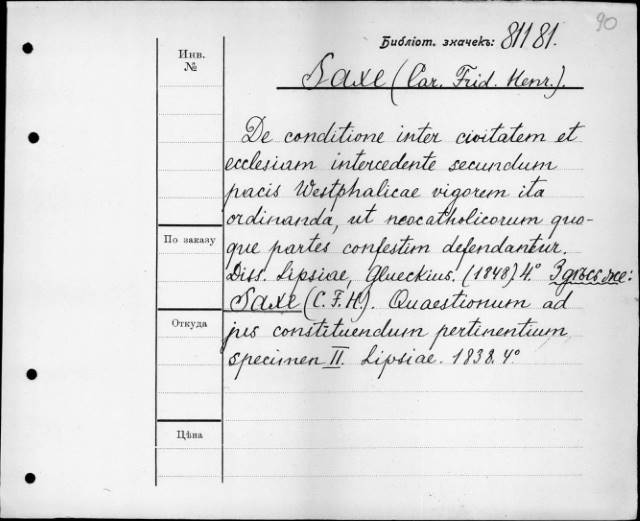 90
Библіот. значекъ: 81181.
Инв.
№
Saxe (Car. Frid. Henr.).
De conditione inter civitatem et
ecclesiam intercedente secundum
pacis Westphalicae vigorem ita
ordinanda, ut neocatholicorum quo-
que partes confestim defendantur.
Diss. Lipsiae, Glueckius. (1848). 4° Здѣсь же:
Saxe (C. F. H.). Quaestionum ad
jus constituendum pertinentium
specimen II. Lipsiae. 1838. 4°
По заказу
Откуда
Цѣна